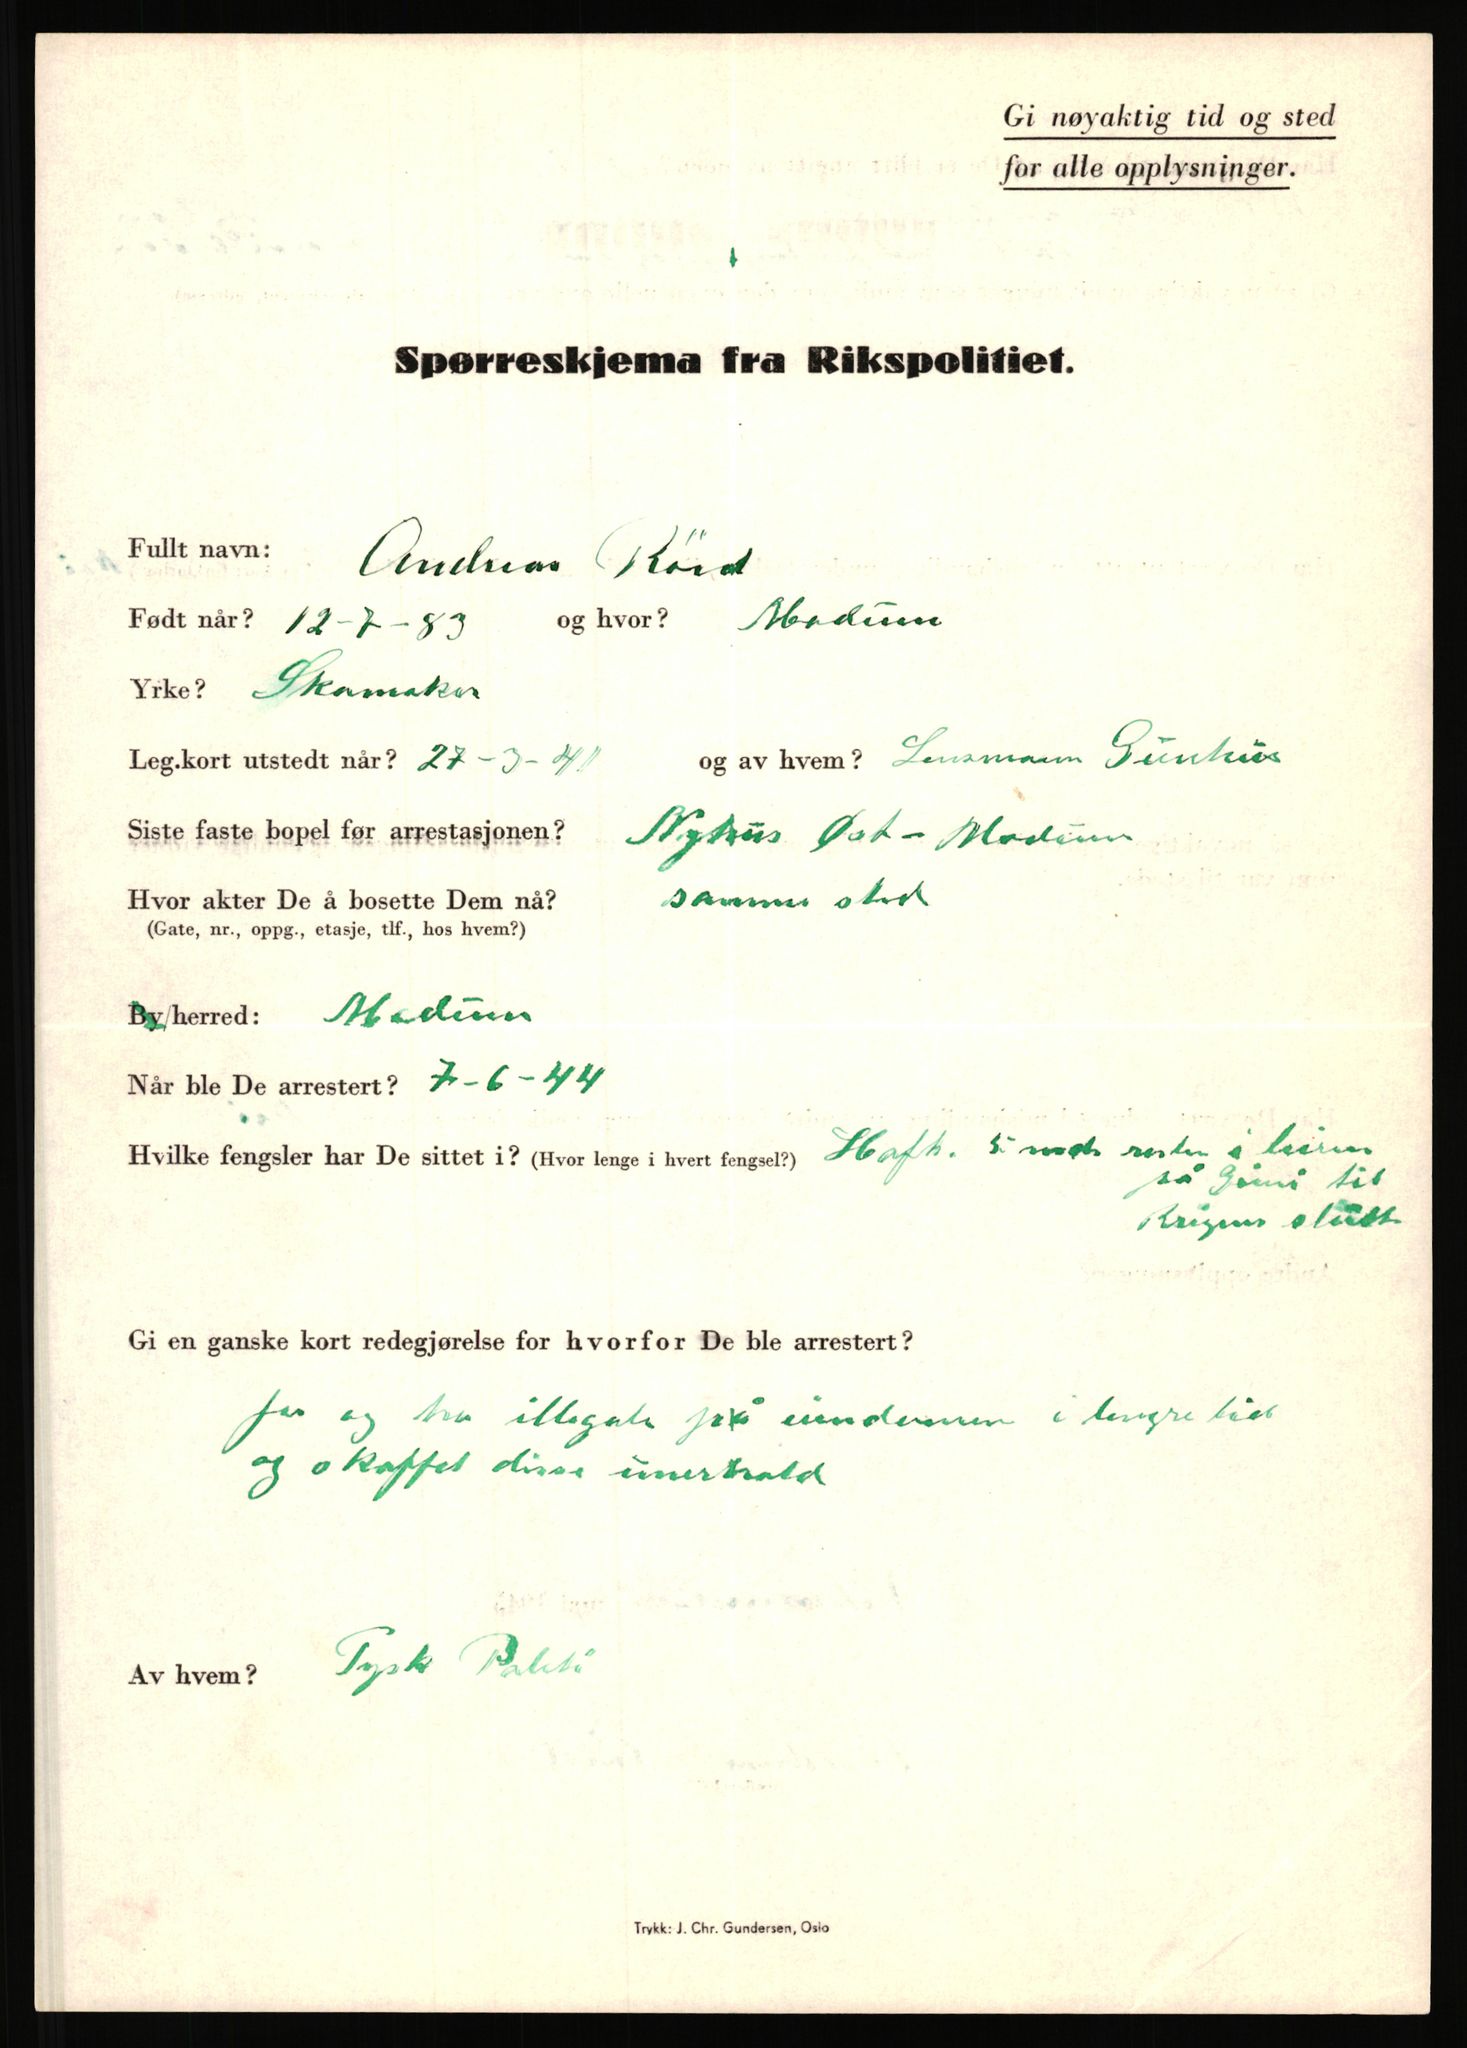 Gi nøyaktig tid og sted
for alle opplysninger.
Spørreskjema fra Rikspolitiet.
Fullt navn: Andreas
Født når? 12-7-83 og hvor? Modum
Yrke? Skomaker
Leg.kort utstedt når? 27-3-41 og av hvem? Lensmann
Siste faste bopel før arrestasjonen? Nyhus Øst-Modum
Hvor akter De å bosette Dem nå? samme sted
(Gate, nr., oppg., etasje, tlf., hos hvem?)
By/herred: Modum
Når ble De arrestert? 7-6-44
Hvilke fengsler har De sittet i? (Hvor lenge i hvert fengsel?) 5 mdr resten i leiren
på Grini til
Krigens slutt
Gi en ganske kort redegjørelse for hvorfor De ble arrestert?
for og ha illegale på eiendommen i lengre tid
og skaffet disse unerhold
Av hvem? Tysk Politi
Trykk: J. Chr. Gundersen, Oslo